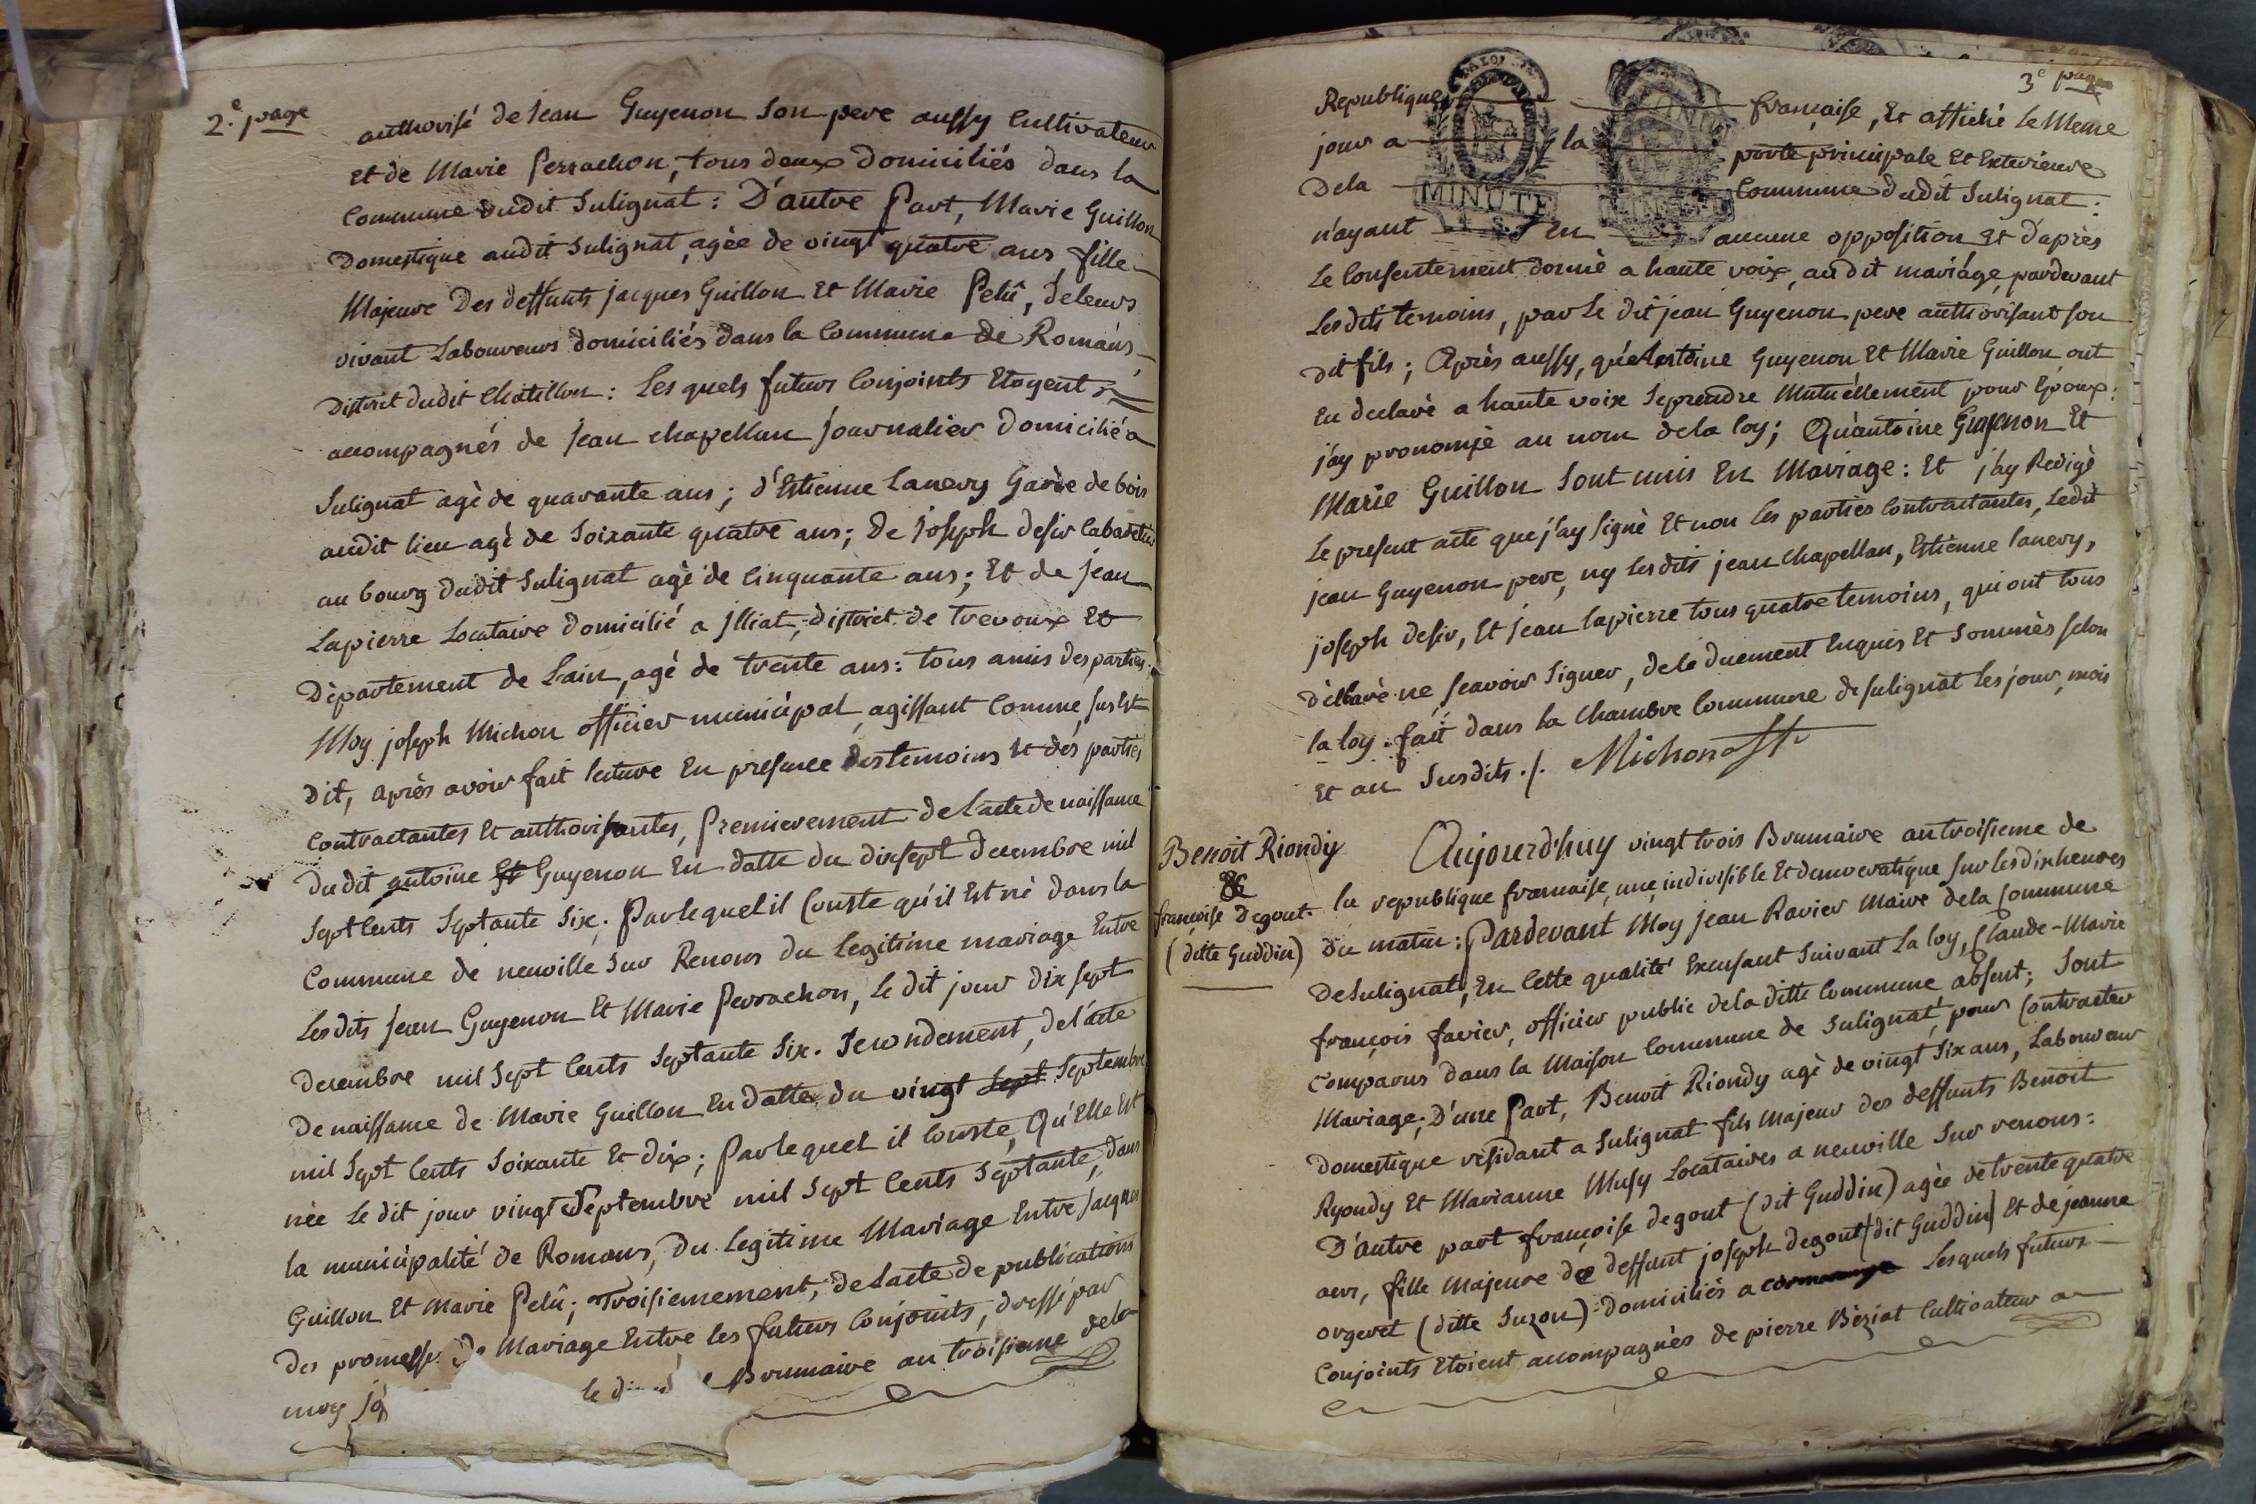 2.e page
authorisé de Jean Guyenon son pere aussy Cultivateur
et de Marie Perrachon, tous deux domiciliés dans la
Commune dudit Sulignat : D'autre Part, Marie Guillon
Domestique audit Sulignat, agèe de vingt quatre ans fille
Majeure Des deffunts jacques Guillon et Marie Pelû, deleurs
vivant Laboureurs domiciliés dans la Commune de Romans,
District dudit Chatillon : Les quels futurs Conjoints Etoyent
accompagnés de Jean chapellan Journalier Domicilié a
Sulignat agè de quarante ans ; d'Estienne Lanery Garde de bois
audit lieu agè de soixante quatre ans ; De Joseph desir Cabaretier
au bourg dudit Sulignat agè de Cinquante ans ; Et de Jean
Lapierre Locataire domicilié a Illiat, district de trevoux Et
Dèpartement de Lain, agé de trente ans : tous amis des parties.
Moy joseph Michon officier municipal, agissant Comme sus Est
Dit, après avoir fait lecture En presence des temoins Et des parties
Contractantes Et authorisantes, Premierement de Lacte de naissance
Du dit antoine Et Guyenon En datte du dixsept decembre mil
Sept Cents Septante Six. Par lequel il Conste qu'il Est nè dans la
Commune de neuville sur Renons du Legitime mariage Entre
Lesdits Jean Guyenon Et Marie Perrachon, Le dit jour dix sept
decembre mil Sept Cents Septante Six. Secondement, de l'acte
De naissance de Marie Guillon En datte du vingt Sept Septembre
mil Sept Cents Soixante Et dix ; Par lequel il Conste, Qu'Elle Est
nèe Le dit jour vingt Septembre mil Sept Cents Septante, dans
la municipalité de Romans, Du Legitime Mariage Entre Jacques
Guillon Et Marie Pelû ; Troisiemement, de Lacte de publications
Des promesses de Mariage Entre les futurs Conjoints, dressé par
moy le Brumaire an troisieme dela
3e page
Republique française, Et affiché Le Meme
jour a la porte principale Et Exterieure
Dela Commune dudit Sulignat :
n'ayant En aucune opposition Et d'après
Le Consentement donnè a haute voix, audit mariage, pardevant
Lesdits temoins, par Le dit jean Guyenon pere authorisant son
dit fils ; Après aussy, qu'Antoine Guyenon Et Marie Guillon ont
En declarè a haute voix Se prendre Mutuellement pour Epoux :
j'ay prononcè au nom dela loy ; Qu'antoine Guyenon Et
Marie Guillon Sont unis En Mariage : Et j'ay Redigè
Le present acte que j'ay signè Et non les parties Contractantes, Ledit
jean Guyenon pere, ny lesdits jean Chapellan, Estienne lanery,
joseph desir, Et jean lapierre tous quatre temoins, qui ont tous
Déclarè ne sçavoir signer, de ce duement Enquis Et Sommès selon
la loy. fait dans la Chambre Commune de sulignat Les jour, mois
Et an Susdits ./. Michon off.r
Benoit Riondy
&
françoise Degout
(ditte Guddin)
Aujourd'huy vingt trois Brumaire an troisieme de
la republique française, une, indivisible Et democratique sur les dix heures
Du matin : Pardevant Moy Jean Ravier Maire dela Commune
De Sulignat, En Cette qualité Excusant Suivant La loy, Claude-Marie
françois favier, officier public dela ditte Commune absent ; Sont
Comparus dans la Maison Commune de Sulignat, pour Contracter
Mariage ; D'une Part, Benoit Riondy agè de vingt Six ans, Laboureur
Domestique résidant a Sulignat fils Majeur des deffunts Benoit
Ryondy Et Marianne Musy Locataires a neuville Sur renons :
D'autre part françoise degout (dit Guddin) agèe de trente quatre
ans, fille Majeure de deffunt joseph degout (dit Guddin) Et de jeanne
orgeret (ditte Suzon) domiciliés a cormoranche Lesquels futurs
Conjoints Etoient accompagnès de pierre Bèziat Cultivateur a